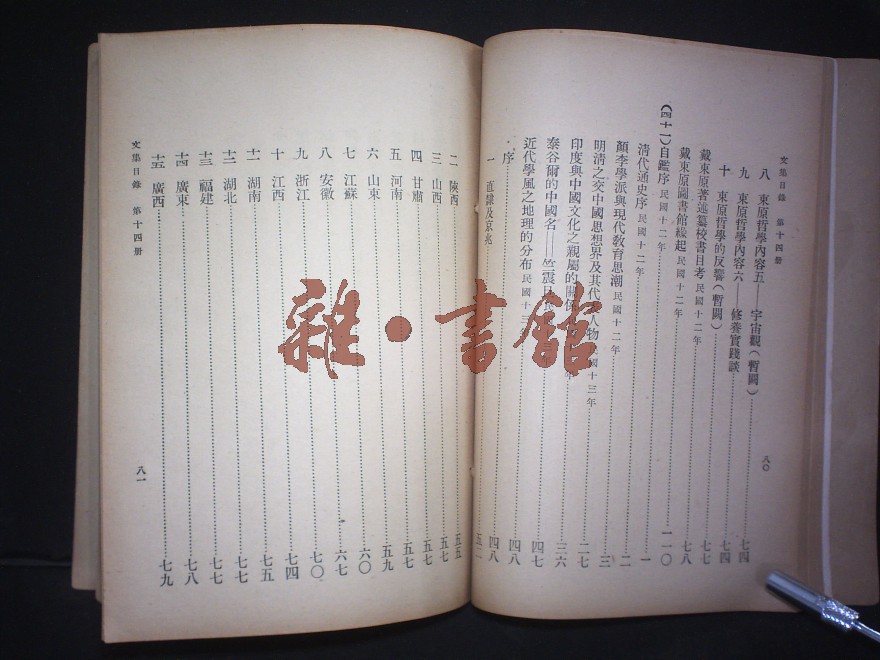 文集目錄 第十四册 八〇
八 東原哲學內容五——宇宙觀(暫闕)……七四
九 東原哲學內容六——修養實踐談……七四
十 東原哲學的反響(暫闕)……七七
戴東原著述纂校書目考 民國十二年……七八
戴東原圖書館緣起 民國十二年……一一〇
(四十一)自鑑序 民國十二年……一
清代通史序 民國十二年……二
顏李學派與現代教育思潮 民國十二年……三
明清之交中國思想界及其代 人物 民國十三年……二七
印度與中國文化之親屬的關係 年……三六
泰谷爾的中國名——竺震旦……四七
近代學風之地理的分布 民國十三……四八
序……四八
一 直隸及京兆……五二
二 陝西……五五
三 山西……五七
四 甘肅……五七
五 河南……五七
六 山東……五九
七 江蘇……六〇
八 安徽……六七
九 浙江……七〇
十 江西……七四
十一 湖南……七五
十二 湖北……七七
十三 福建……七七
十四 廣東……七八
十五 廣西……七九
文集目錄 第十四册 八一
雜·書館